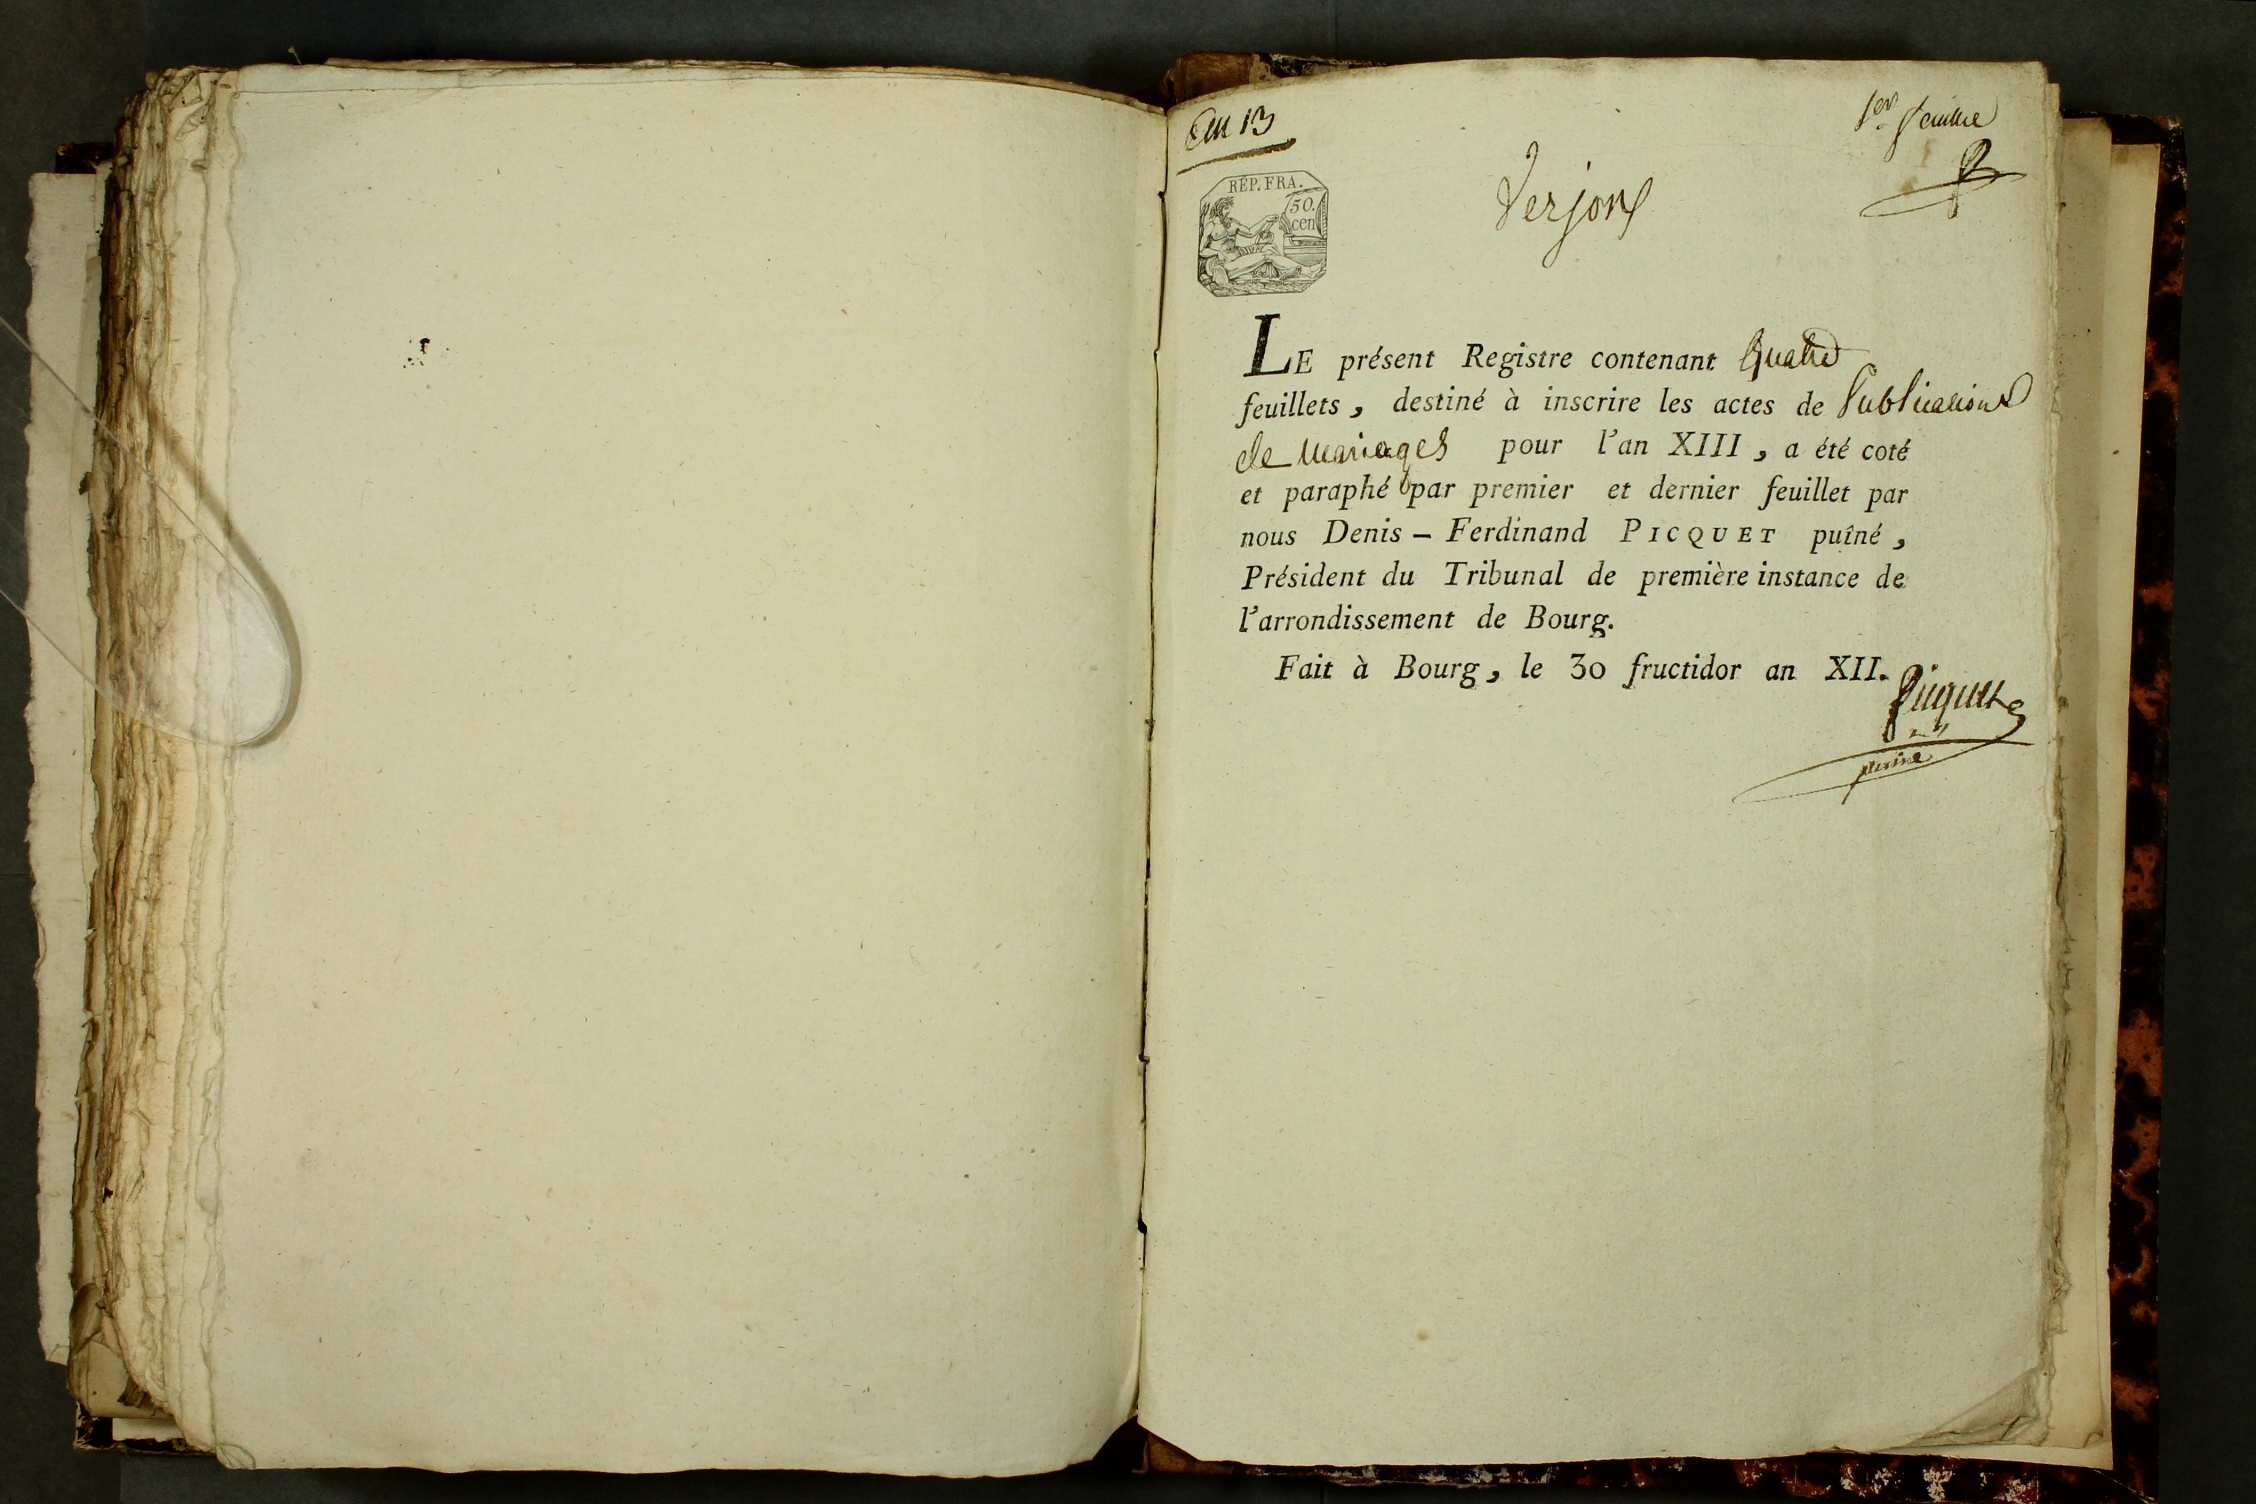 An 13
1er feuillet
RÉP. FRA.
50.
cen
Verjon
LE présent Registre contenant Quatre
feuillets, destiné à inscrire les actes de Publications
de mariages pour l'an XIII, a été coté
et paraphé par premier et dernier feuillet par
nous Denis - Ferdinand PICQUET puîné,
Président du Tribunal de première instance de
l'arrondissement de Bourg.
Fait à Bourg, le 30 fructidor an XII.
Picquet
puiné